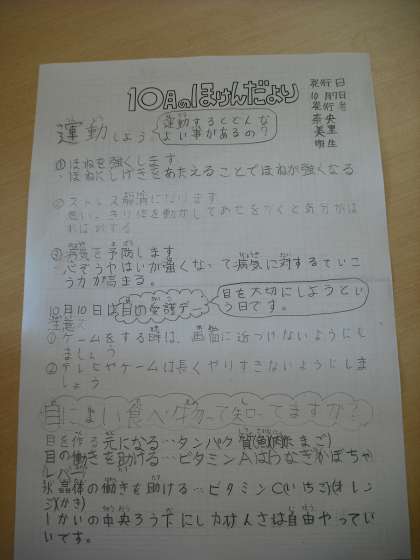 10月のほけんだより
発行日
10月7日
発行者
奈央
美里
運動しよう
運動するとどんな
よい事があるの?
①ほねを強くします
・ほねにしげきをあたえることでほねが強くなる
②ストレス解消になります
思いっきり体を動かしてあせをかくと気分がは
ればれする
③病気を予防します
心ぞうやはいが強くなって病気に対するていこ
う力が高まる。
10月10日は目の愛護デー
目を大切にしようとい
う日です。
①ゲームをする時は、画面に近づけないようにし
ましょう
②テレビやゲームは長くやりすぎないようにしま
しょう
目によい食べ物って知ってますか?
目を作る元になる…タンパク質(魚)(肉)(たまご)
目の働きを助ける…ビタミンA(うなぎ)(かぼちゃ)
(レバー)
水晶体の働きを助ける…ビタミンC(いちご)(オレン
ジ)(かき)
1かいの中央ろう下に
は自由
いいです。